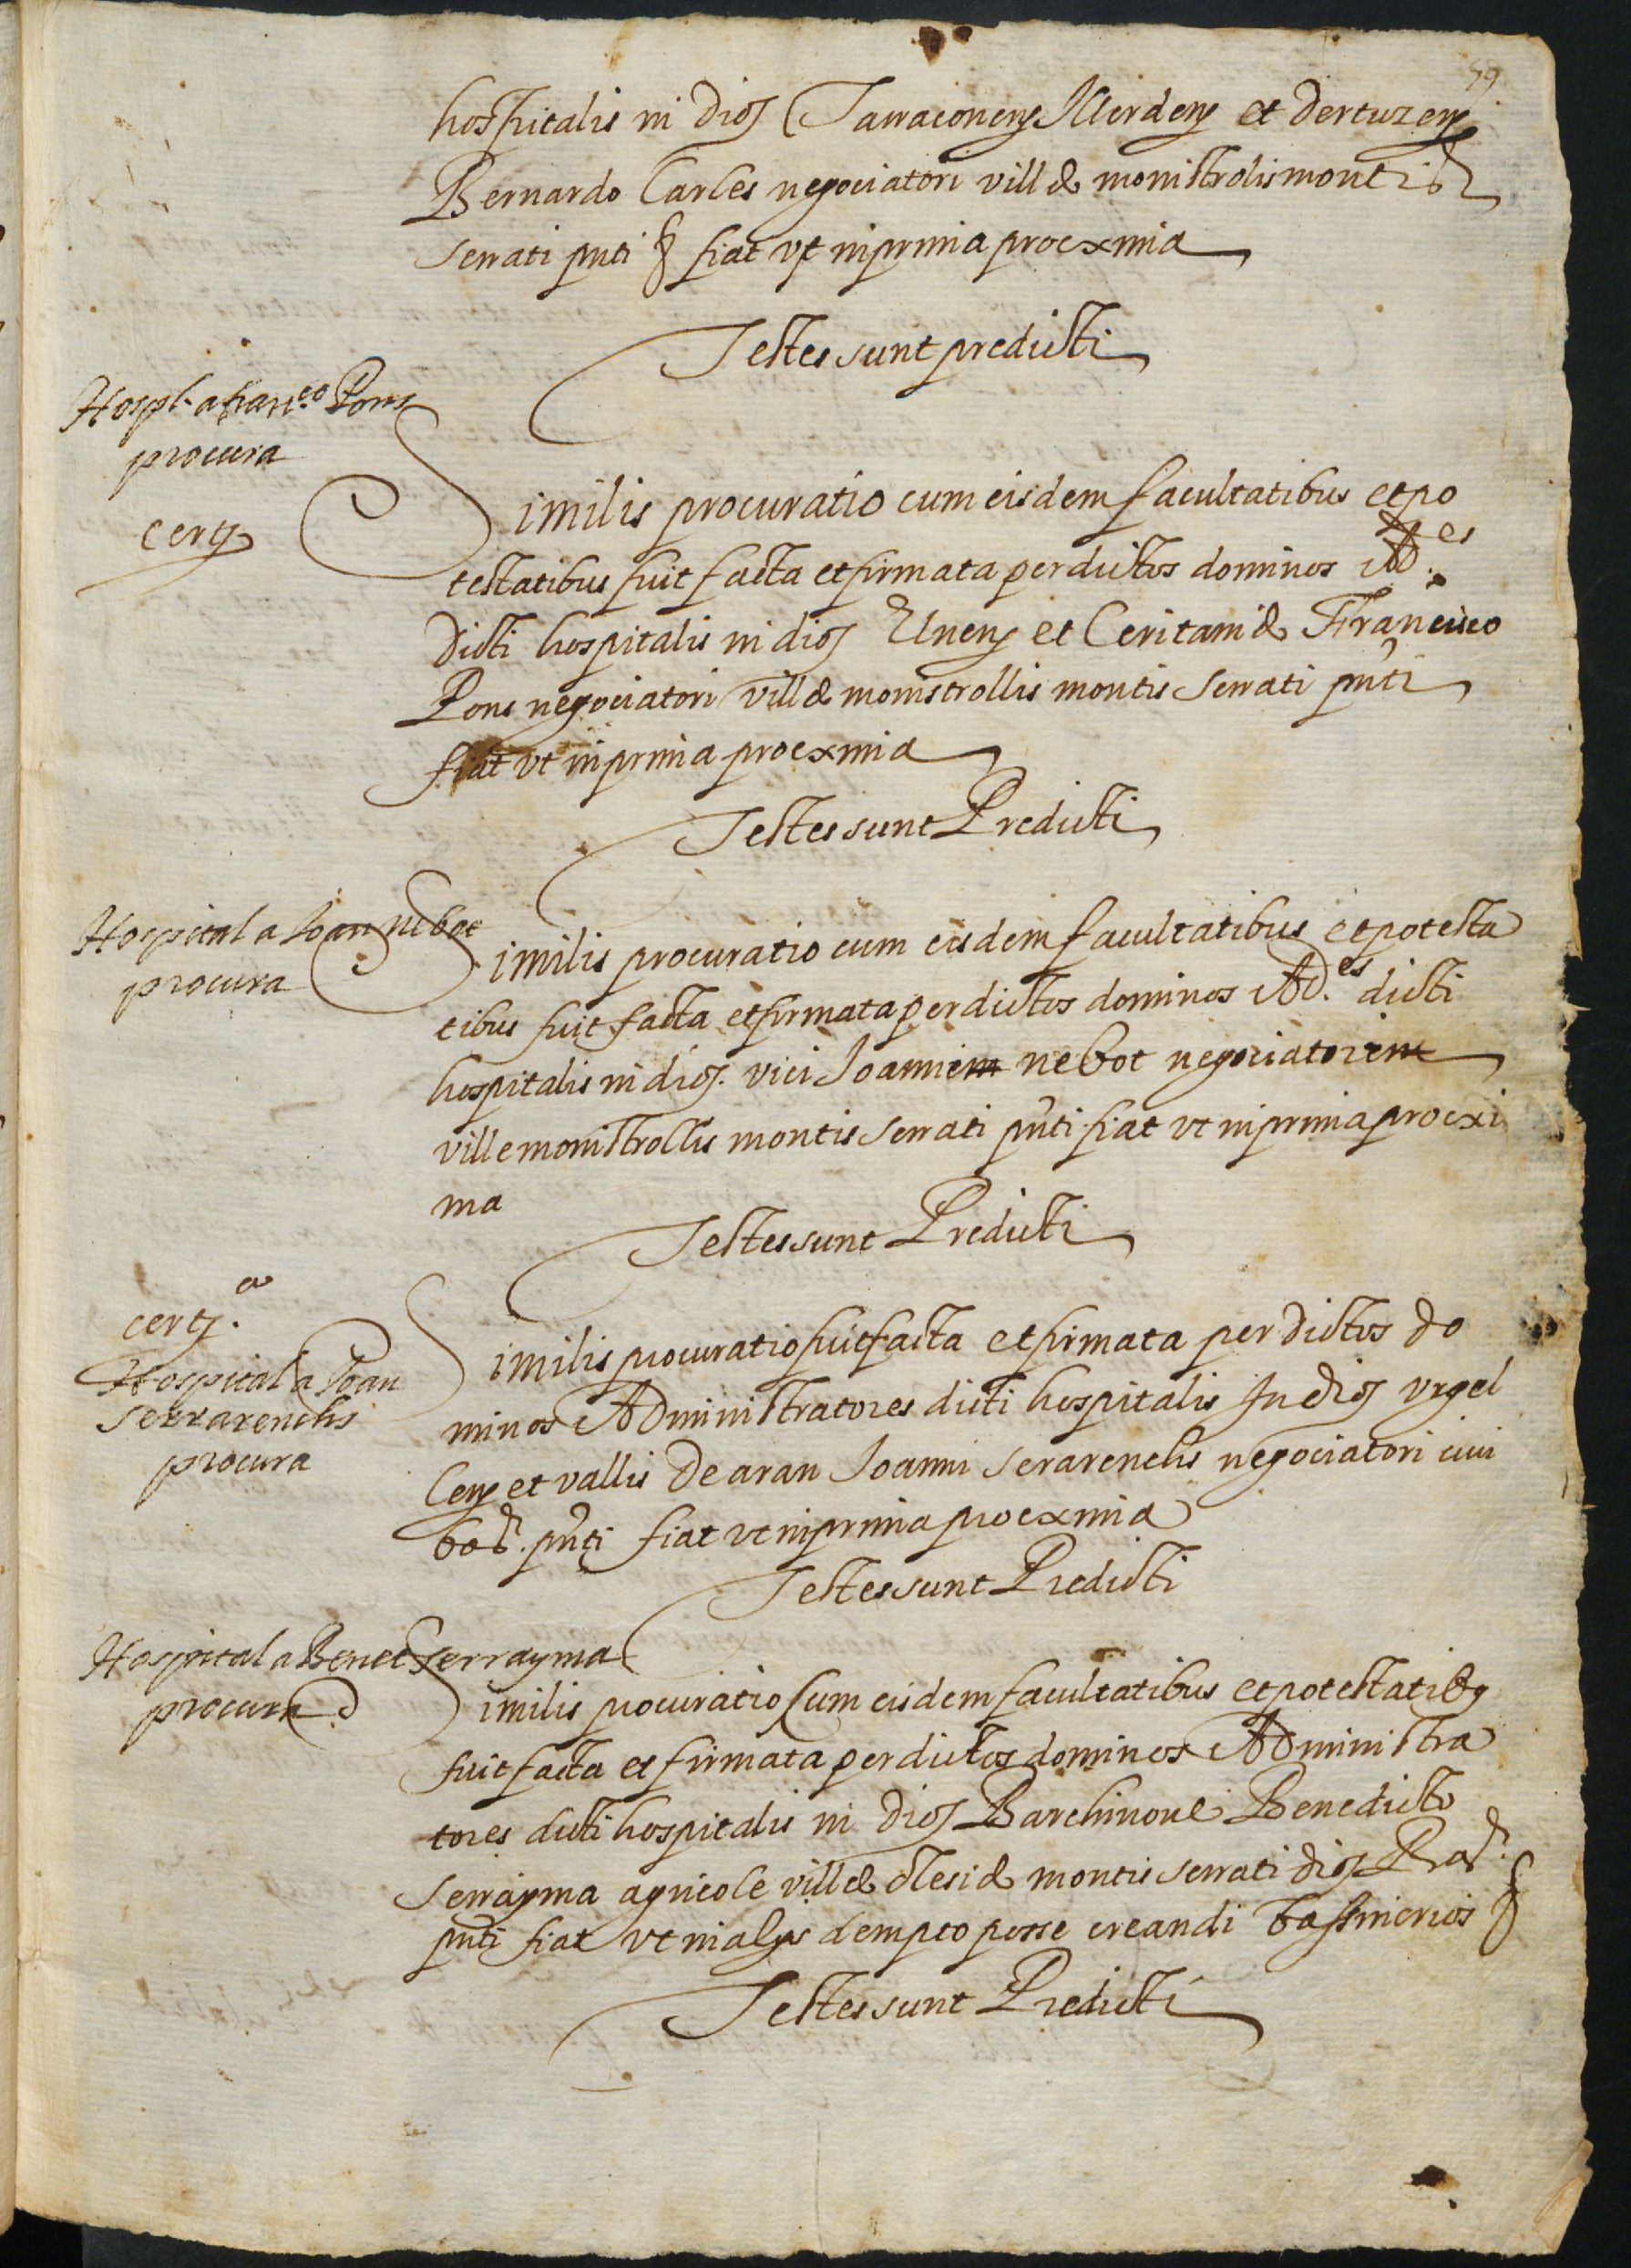 59
hospitalis in dios Tarraconens Illerdens et dertuzens
Bernardo Carles negociatori villæ monistrolis montis
serrati pnti & fiat vt in prima procxima
Testes sunt predicti
Hospl. a fran.co Pons
procura
certj
Similis procuratio cum eisdem facultatibus et po
testatibus fuit facta et firmata per dictos dominos Ad.es
dicti hospitalis in dios Elnens et Ceritaniæ Francisco
Pons negociatori villæ monistrollis montis serrati pnti
fiat vt in prima procxima
Testes sunt Predicti
Hospital a Joan nebot
procura
Similis procuratio cum eisdem facultatibus et potesta
tibus fuit facta et firmata per dictos dominos Ad.es dicti
hospitalis in dios. vici Joannem nebot negociatorem
ville monistrollis montis serrati pnti fiat vt in prima procxi
ma
Testes sunt Predicti
certj.a
Hospital a Joan
serrarenchs
procura
Similis procuratio fuit facta et firmata per dictos do
minos Administratores dicti hospitalis In dios vrgel
lens et vallis de aran Joanni serarenchs negociatori ciui
bar. pnti fiat vt in prima procxima
Testes sunt Predicti
Hospital a Benet serrayma
procura
Similis procuratio Cum eisdem facultatibus et potestatibus
fuit facta et firmata per dictos dominos Administra
tores dicti hospitalis in dios Barchinone Benedicto
serrayma agricole villæ olesiæ montis serrati dios Bar.
pnti fiat vt in alijs dempto posse creandi bassinerios &
Testes sunt Predicti